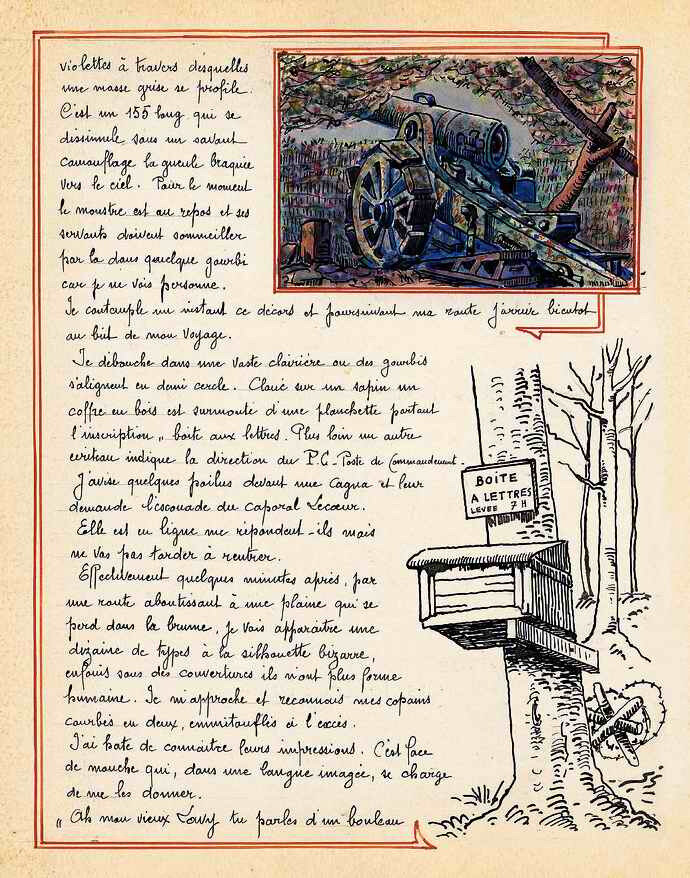 violettes à travers desquelles
une masse grise se profile.
C'est un 155 long qui se
dissimule sous un savant
camouflage la gueule braquée
vers le ciel. Pour le moment
le monstre est au repos et ses
servants doivent sommeiller
par la dans quelque gourbi
car je ne vois personne.
Je contemple un instant ce décors et poursuivant ma route j'arrive bientot
au bût de mon voyage.
Je débouche dans une vaste clairière ou des gourbis
s'alignent en demi cercle. Cloué sur un sapin un
coffre en bois est surmonté d'une planchette portant
l'inscription „ boite aux lettres. Plus loin un autre
ecriteau indique la direction du P.C-Poste de Commandement.
J'avise quelques poilus devant une cagna et leur
demande l'escouade du caporal Lecœur.
Elle est en ligne me répondent-ils mais
ne vas pas tarder à rentrer.
Effectivement quelques minutes après, par
une route aboutissant à une plaine qui se
perd dans la brume, je vois apparaitre une
dizaine de types à la silhouette bizarre,
enfouis sous des couvertures ils n'ont plus forme
humaine. Je m'approche et reconnais mes copains
courbés en deux, emmitouflés à l'excès.
J'ai hate de connaitre leurs impressions. C'est face
de mouche qui, dans une langue imagée, se charge
de me les donner.
„ Ah mon vieux Louvy tu parles d'un bouleau
BOITE
A LETTRES
LEVEE 7H